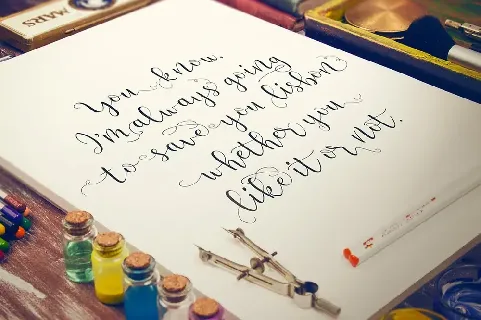 MARS
You know.
I'm always going
to save you lisbon
whether you
like it or not.